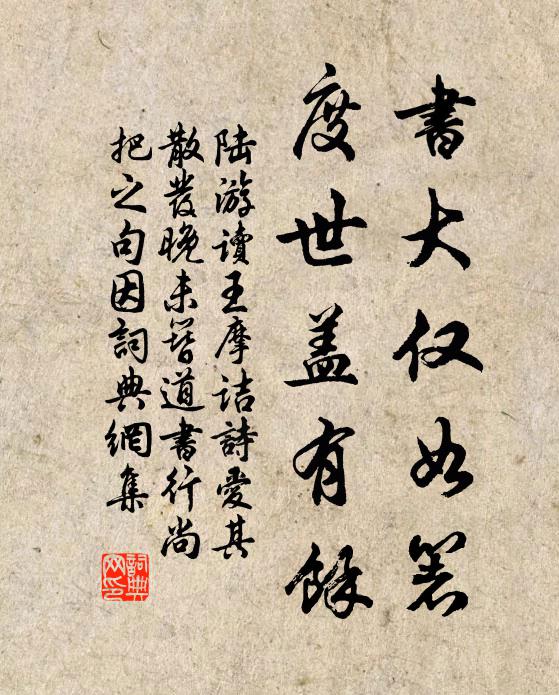 書大仅如箸
度世盖有餘
陸游讀王摩詰詩愛其
散發晚未簪道書行尚
把之句因詞典網集
詞典网印